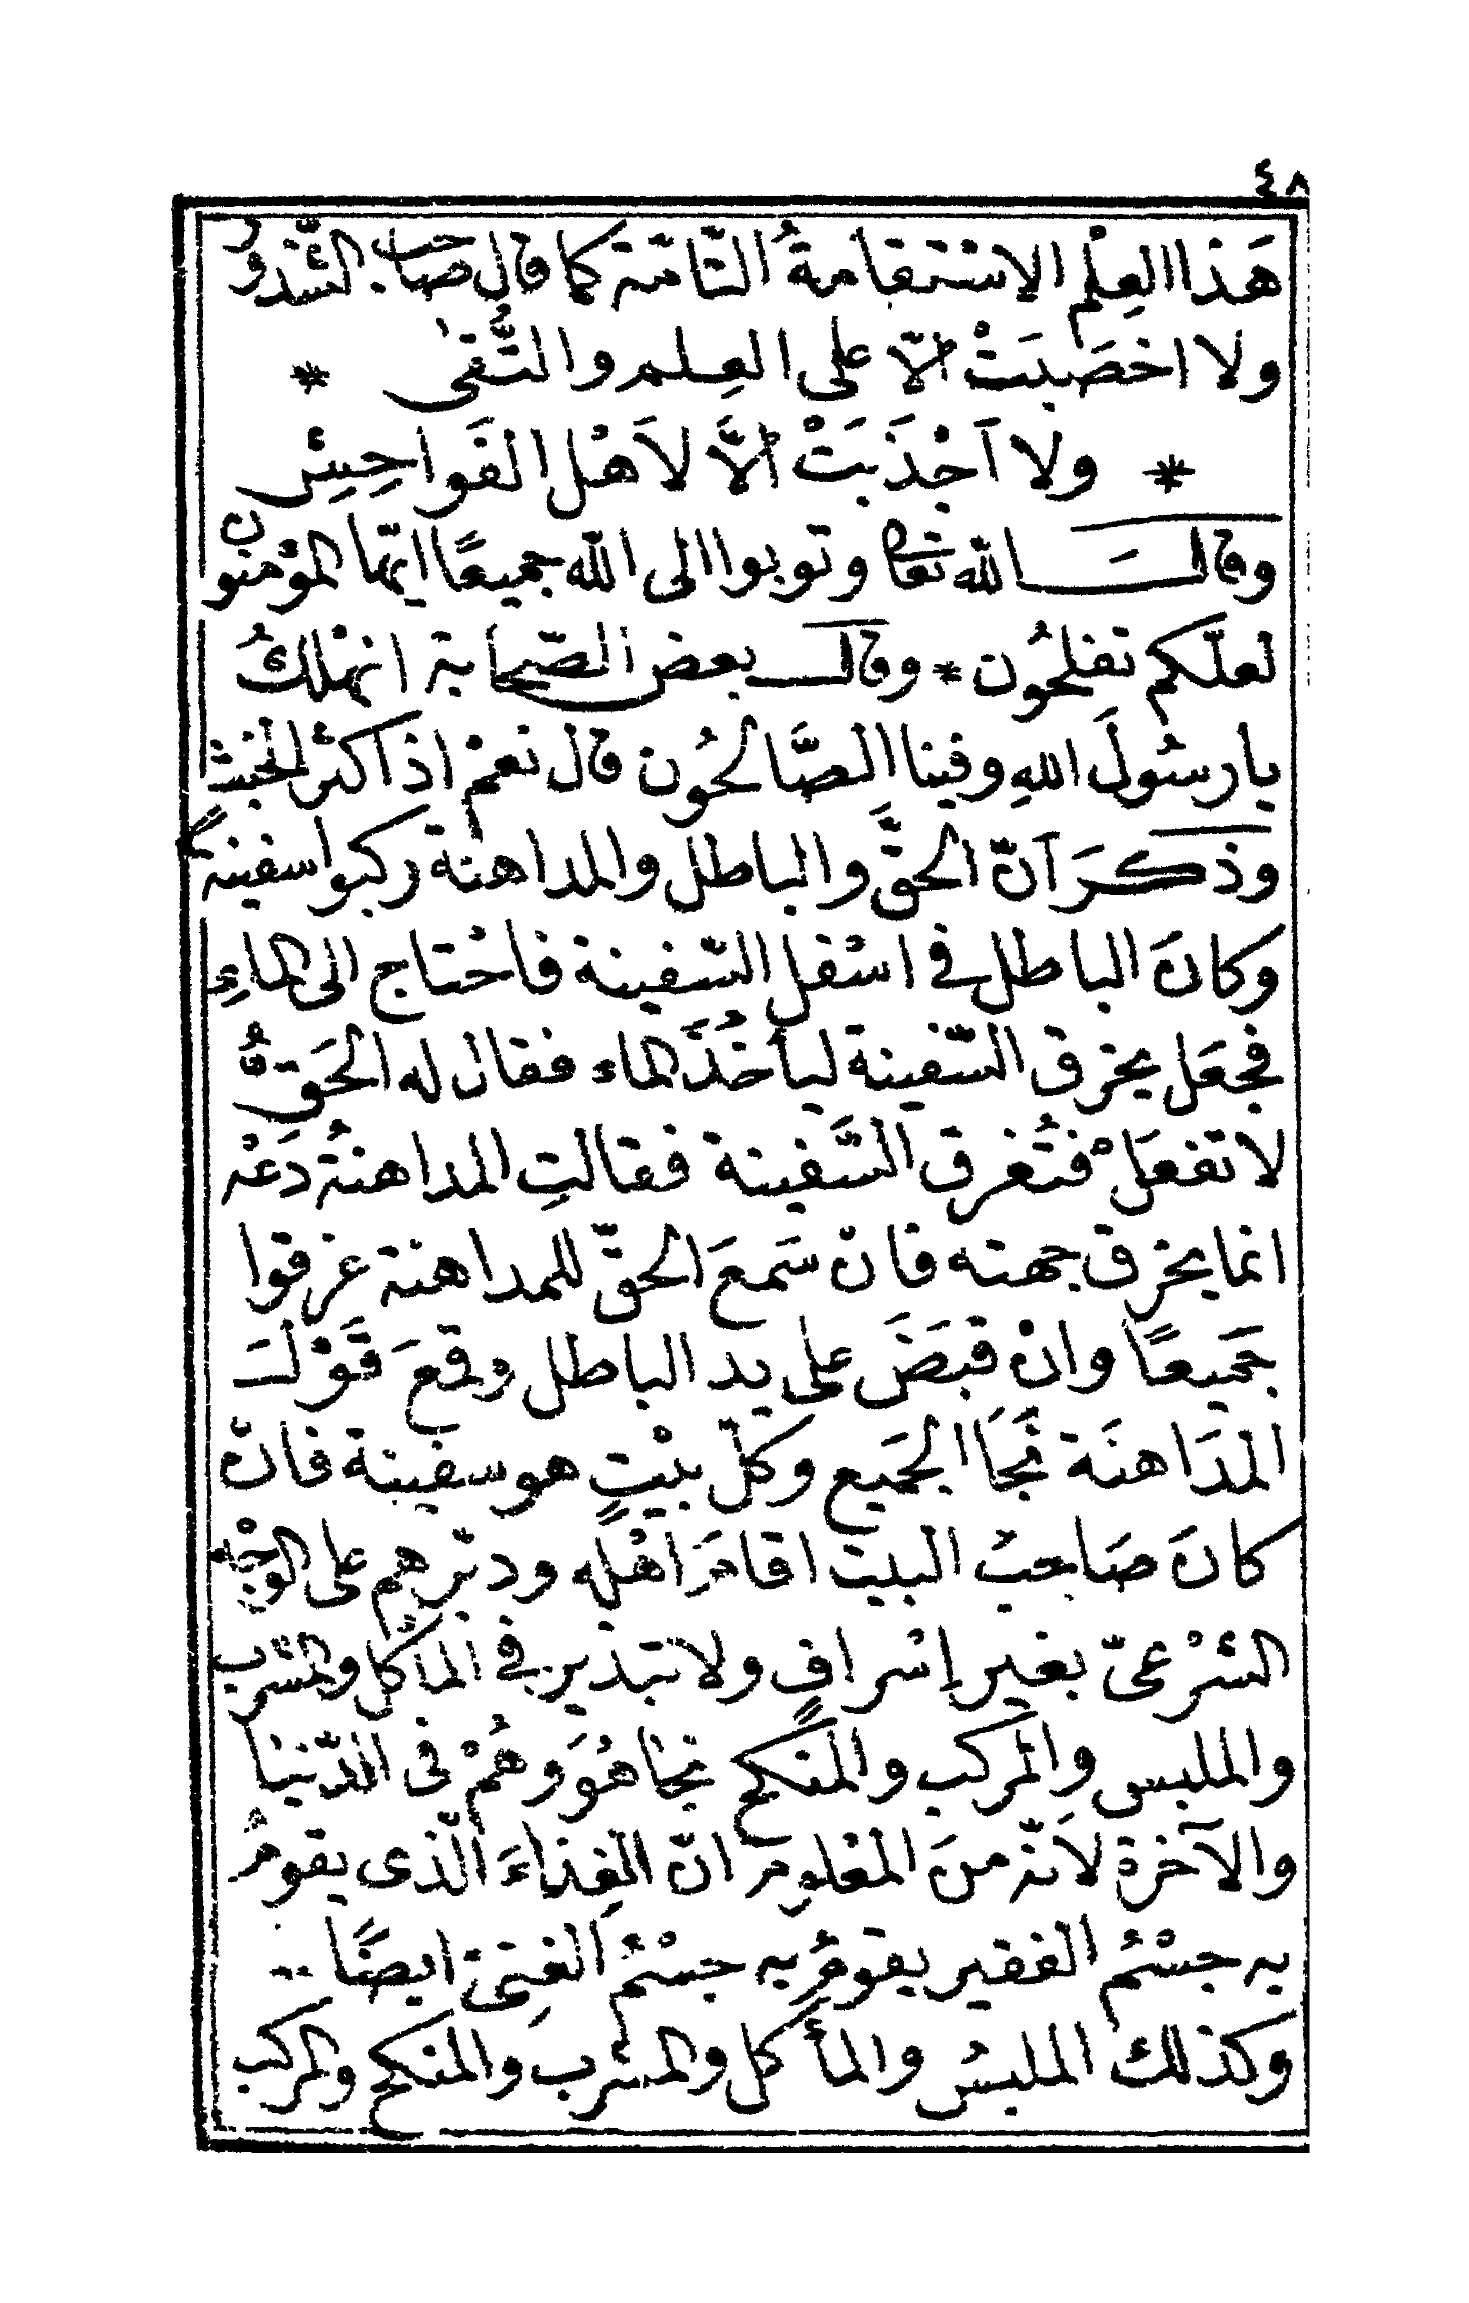 ٤٨
هَذا العِلْم الاسْتقامةُ التّامّة كما قال صاحب الشّذور
ولا اخصَبَتْ الّا على العِلم والتُّقى *
* ولا اَجْذَبَتْ الَّا لاَهْل الفَواحِشِ
وقالَ الله تعالى وتوبوا الى الله جميعًا ايّها المؤمنون
لعلّكم تفلحُون * وقال بعض الصّحابة انهْلكُ
يارسُولَ اللهِ وفينا الصَّالحُون قال نعمْ اذا كثر الخبث
وذكَرَ اَنّ الحقَّ والباطل والمداهنة ركبوا سفينة
وكانَ الباطل فى اسْفل السّفينة فاحْتاج الى الماءِ
فجعَل يخرق السّفينة ليأخُذَ الماء فقال له الحَقُّ
لا تفعَلْ فتُغرق السَّفينة فقالتِ المداهنةُ دَعْه
انما يخرق جهته فانْ سَمعَ الحقّ للمداهنة غرقوا
جَميعًا وانْ قبَضَ على يد الباطل وقعَ قَوْلَ
المدَاهنَة نَجَا الجَميع وكلّ بيْتٍ هو سفينة فانْ
كانَ صَاحبُ البيت اقامَ اهْله ودبّرهم على الوجْه
الشرْعىّ بغير إسْرافٍ ولا تبذير فى المأكل والمشرب
والملبس والمركب والمنكح نجا هُوَ وهُمْ فى الدّنيا
والآخرة لاَنّه منَ المعْلوم انّ الغِذاءَ الّذى يقومُ
به جسْمُ الفقير يقومُ به جسْمُ الغنِىّ ايضًا
وكذلك الملبسُ والمأكل والمشرب والمنكح والمركب